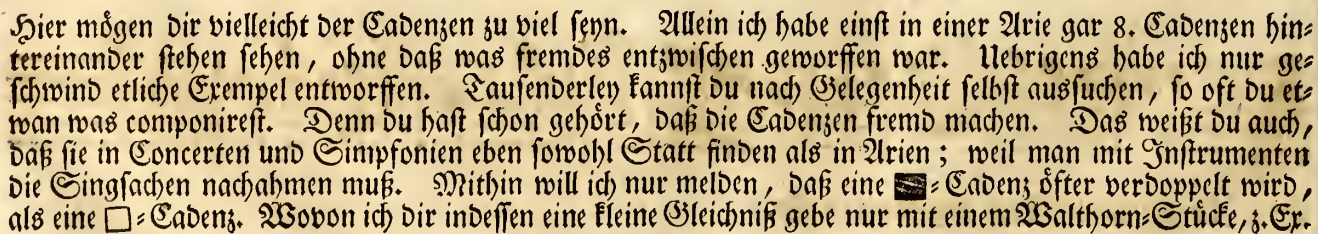 Hier mögen dir vielleicht der Cadenzen zu viel seyn. Allein ich habe einst in einer Arie gar 8. Cadenzen hin=
tereinander stehen sehen, ohne daß was fremdes entzwischen geworffen war. Uebrigens habe ich nur ge=
schwind etliche Exempel entworffen. Tausenderley kannst du nach Gelegenheit selbst aussuchen, so oft du et=
wan was componirest. Denn du hast schon gehört, daß die Cadenzen fremd machen. Das weißt du auch,
daß sie in Concerten und Simpfonien eben sowohl Statt finden als in Arien; weil man mit Instrumenten
die Singsachen nachahmen muß. Mithin will ich nur melden, daß eine ■=Cadenz öfter verdoppelt wird,
als eine □=Cadenz. Wovon ich dir indessen eine kleine Gleichniß gebe nur mit einem Walthorn=Stücke, z. Ex.